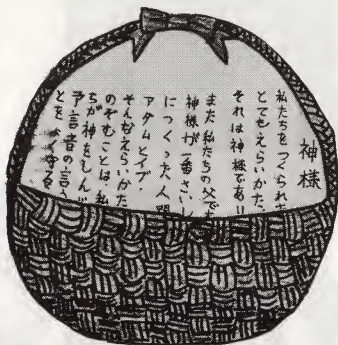 神様
私たちを つくられ
とてもえらいかた、
それは神様であり
また私たちの父で
神様が一番さいし
につくった人間
アダムとイブ、
そんなえらいかた
のぞむことは、私
ちが神をしんじ
予言者の言う
とを よく守る